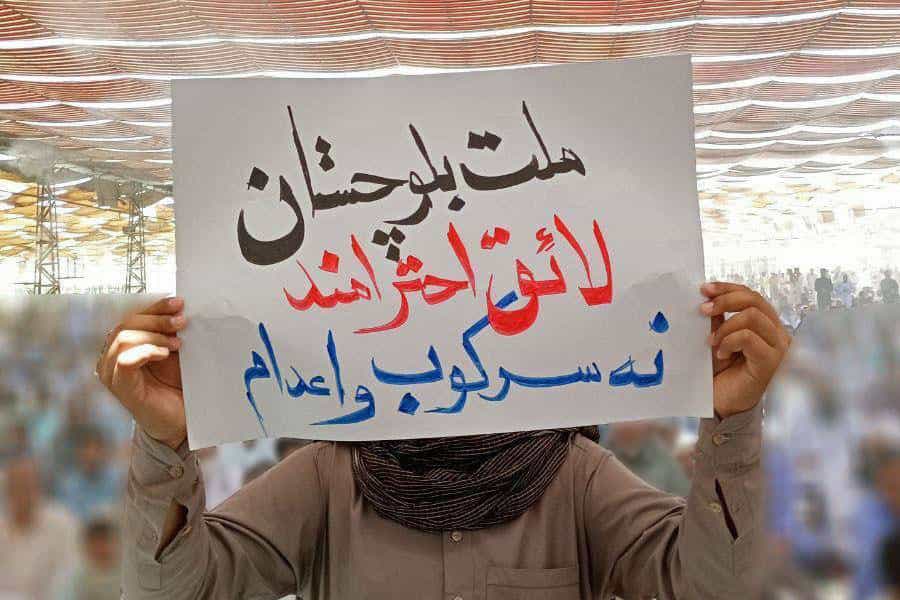 ملت بلوچستان
لائق احترامند
نه سرکوب و اعدام